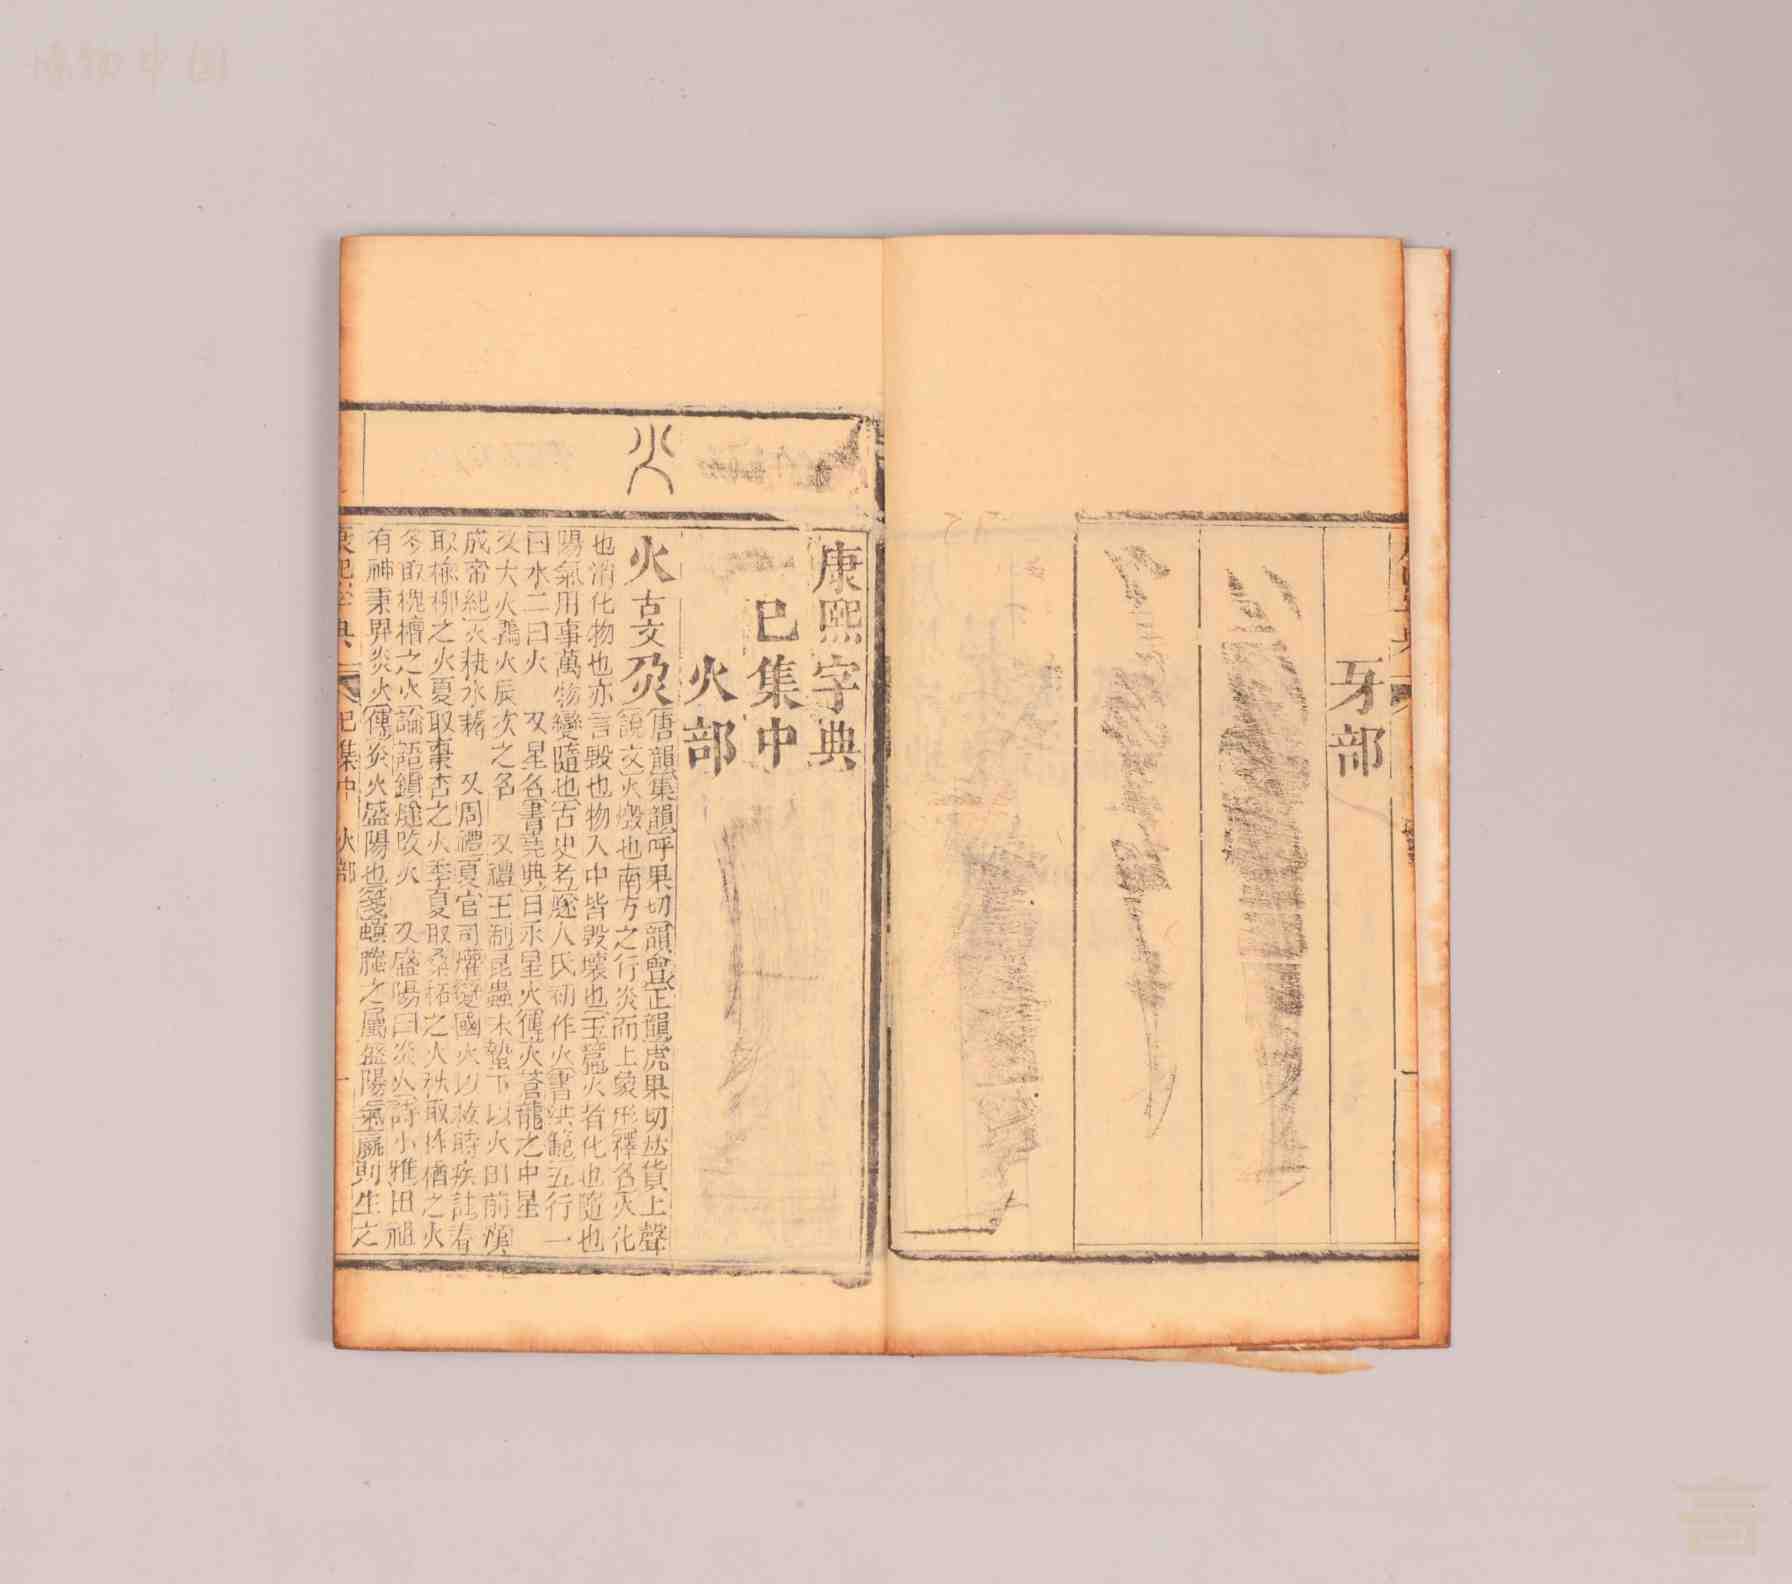 牙部
康熙字典
巳集中
火部
火古文𤆄唐韻集韻呼果切韻會正韻虎果切𠀤貨上聲
說文火燬也南方之行炎而上象形釋名火化
也消化物也亦言毀也物入中皆毀壞也玉篇火者化也隨也
陽氣用事萬物變隨也古史考燧人氏初作火書洪範五行一
曰水二曰火 又星名書堯典日永星火傳火蒼龍之中星
又大火鶉火辰次之名 又禮王制昆蟲未蟄不以火田前漢
成帝紀火耕水耨 又周禮夏官司爟變國火以救時疾註春
取榆柳之火夏取棗杏之火季夏取桑柘之火秋取柞楢之火
冬取槐檀之火論語鑽燧改火 又盛陽曰炎火詩小雅田祖
有神秉畀炎火傳炎火盛陽也箋螟螣之屬盛陽氣嬴則生之
康熙字典 巳集中 火部 一
博物中国